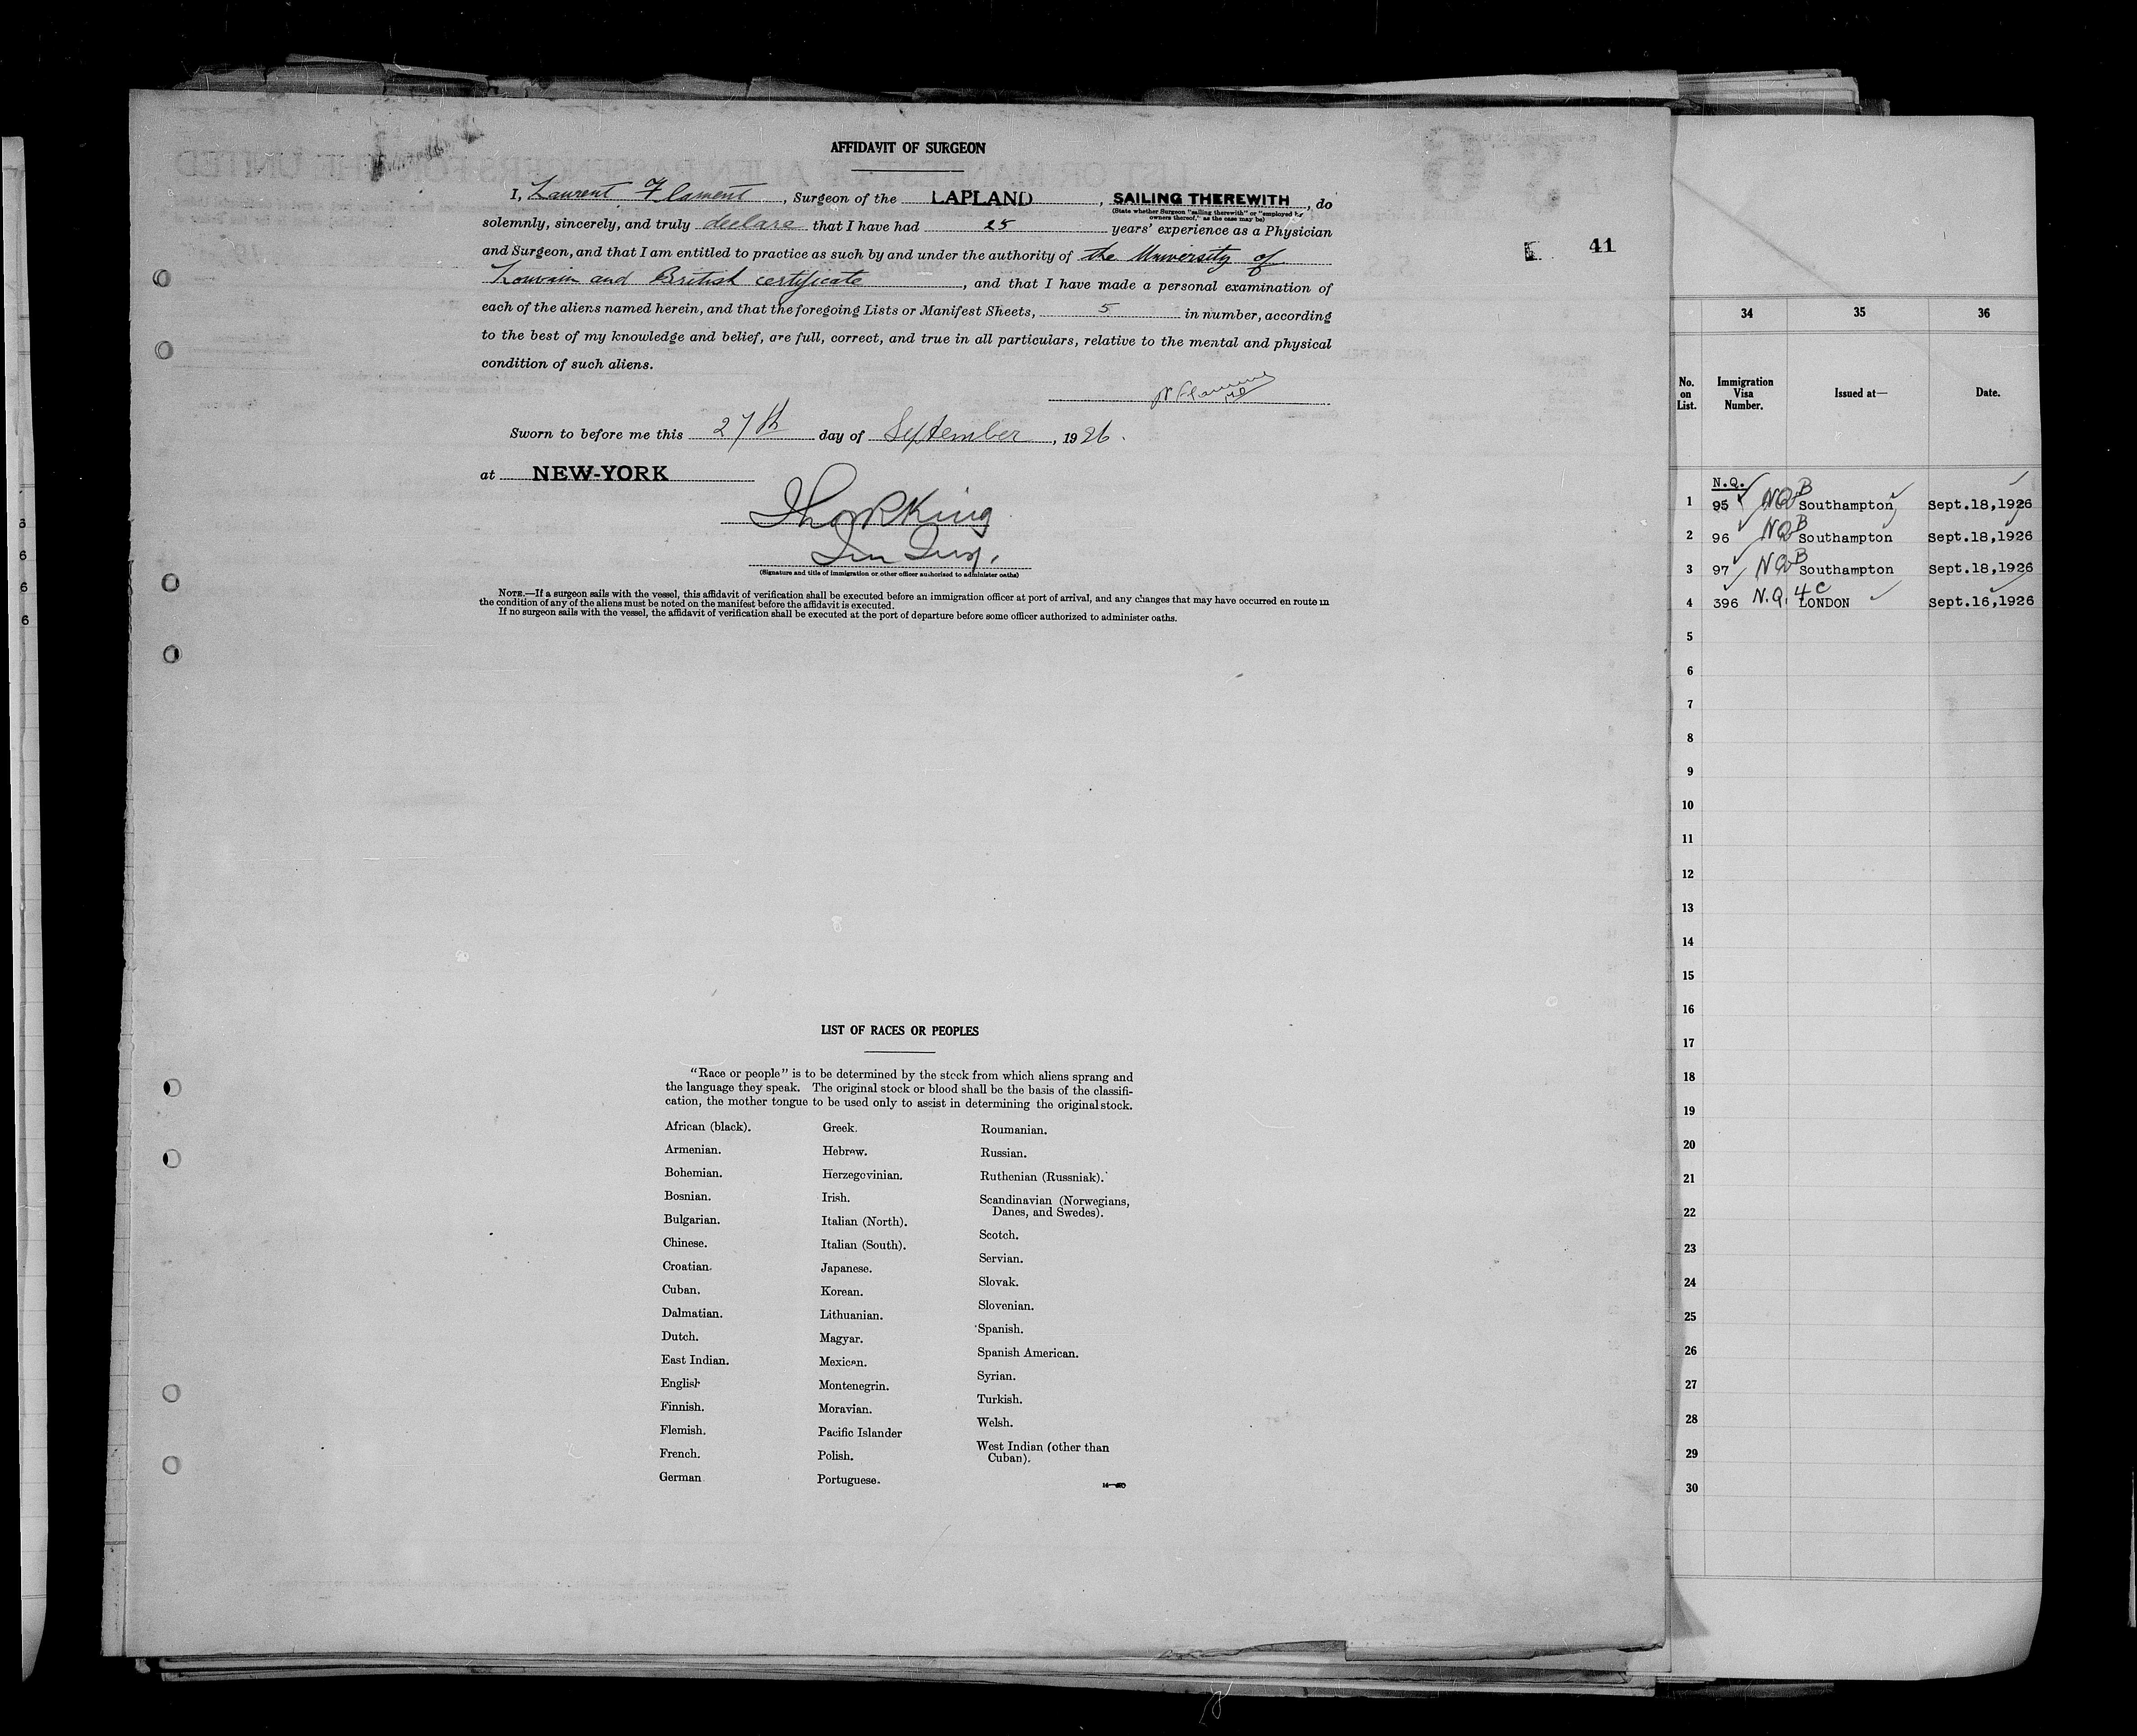 AFFIDAVIT OF SURGEON
I, Laurent Flament, Surgeon of the LAPLAND, SAILING THEREWITH, do
(State whether Surgeon "sailing therewith" or "employed by
owners thereof," as the case may be)
solemnly, sincerely, and truly declare that I have had 25 years' experience as a Physician
and Surgeon, and that I am entitled to practice as such by and under the authority of the University of
Louvain and British certificate, and that I have made a personal examination of
each of the aliens named herein, and that the foregoing Lists or Manifest Sheets, 5 in number, according
to the best of my knowledge and belief, are full, correct, and true in all particulars, relative to the mental and physical
condition of such aliens.
Sworn to before me this 27th day of September, 1926.
at NEW-YORK
(Signature and title of immigration or other officer authorized to administer oaths)
NOTE.—If a surgeon sails with the vessel, this affidavit of verification shall be executed before an immigration officer at port of arrival, and any changes that may have occurred en route in
the condition of any of the aliens must be noted on the manifest before the affidavit is executed.
If no surgeon sails with the vessel, the affidavit of verification shall be executed at the port of departure before some officer authorized to administer oaths.
LIST OF RACES OR PEOPLES
"Race or people" is to be determined by the stock from which aliens sprang and
the language they speak. The original stock or blood shall be the basis of the classifi-
cation, the mother tongue to be used only to assist in determining the original stock.
African (black).
Armenian.
Bohemian.
Bosnian.
Bulgarian.
Chinese.
Croatian.
Cuban.
Dalmatian.
Dutch.
East Indian.
English
Finnish.
Flemish.
French.
German
Greek.
Hebrew.
Herzegovinian.
Irish.
Italian (North).
Italian (South).
Japanese.
Korean.
Lithuanian.
Magyar.
Mexican.
Montenegrin.
Moravian.
Pacific Islander
Polish.
Portuguese.
Roumanian.
Russian.
Ruthenian (Russniak).
Scandinavian (Norwegians,
Danes, and Swedes).
Scotch.
Servian.
Slovak.
Slovenian.
Spanish.
Spanish American.
Syrian.
Turkish.
Welsh.
West Indian (other than
Cuban).
41
34 35 36
No. on List. Immigration Visa Number. Issued at— Date.
N.Q.
1 95 NQB Southampton Sept.18,1926
2 96 NQB Southampton Sept.18,1926
3 97 NQB Southampton Sept.18,1926
4 396 N.Q. 4C LONDON Sept.16,1926
5
6
7
8
9
10
11
12
13
14
15
16
17
18
19
20
21
22
23
24
25
26
27
28
29
30